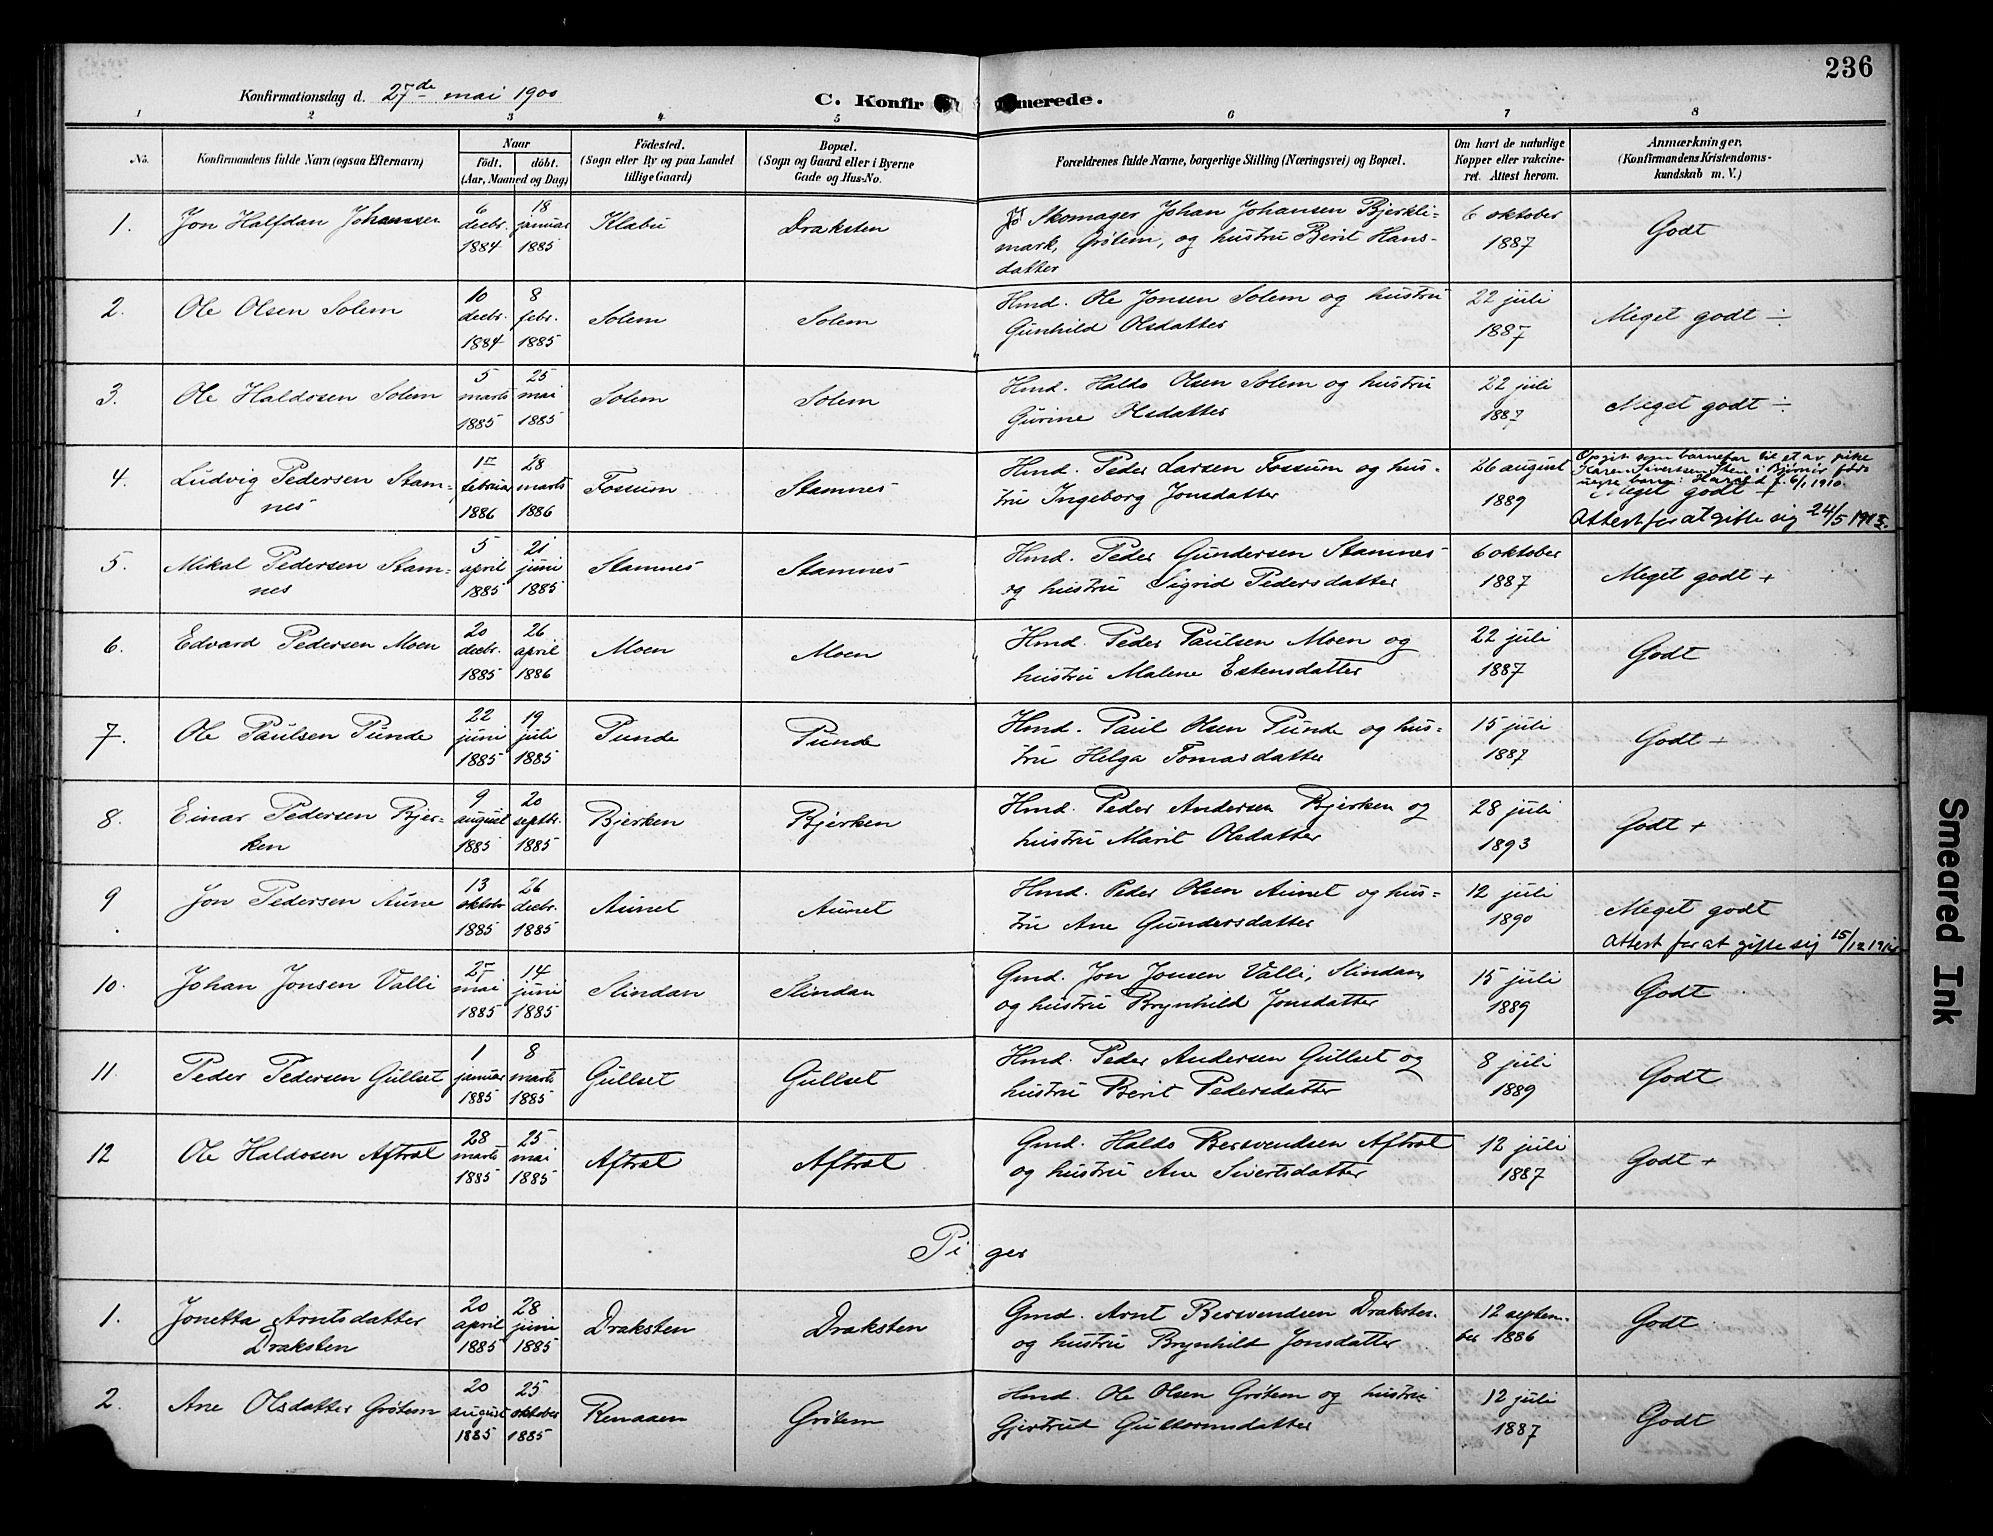 236
Konfirmationsdag d. 27de mai 1900
C. Konfirmerede.
1 2 3 4 5 6 7 8
No.
Konfirmandens fulde Navn (ogsaa Efternavn)
Naar
födt. döbt.
(Aar, Maaned og Dag)
Födested.
(Sogn eller By og paa Landet
tillige Gaard)
Bopæl.
(Sogn og Gaard eller i Byerne
Gade og Hus-No.
Forældrenes fulde Navne, borgerlige Stilling (Næringsvei) og Bopæl.
Om havt de naturlige
Kopper eller vakcine-
ret. Attest herom.
Anmærkninger.
(Konfirmandens Kristendoms-
kundskab m. V.)
1. Jon Halfdan Johansen
6 decbr. 1884
18 januar 1885
Klæbu
Draksten
Skomager Johan Johansen Bjerkli-
mark, Grötem, og hustru Berit Hans-
datter
6 oktober
1887
Godt
2. Ole Olsen Solem
10 decbr. 1884
8 febr. 1885
Solem
Solem
Hmd. Ole Jonsen Solem og hustru
Gunhild Olsdatter
22 juli
1887
Meget godt ÷
3. Ole Haldosen Solem
5 marts 1885
25 mai 1885
Solem
Solem
Hmd. Haldo Olsen Solem og hustru
Gurine Olsdatter
22 juli
1887
Meget godt ÷
4. Ludvig Pedersen Stam-
nes
17 februar 1886
28 marts 1886
Fossum
Stamnes
Hmd. Peder Larsen Fossum og hus-
tru Ingeborg Jonsdatter
26 august
1889
Opgit som barnefar til et av pike
Karen Sivertsen født
uegte barn: Harald f. 6/1 1910.
Meget godt +
Attest for at gifte sig 24/5 1913.
5. Mikal Pedersen Stam-
nes
5 april 1885
21 juni 1885
Stamnes
Stamnes
Hmd. Peder Gundersen Stamnes
og hustru Sigrid Pedersdatter
6 oktober
1887
Meget godt +
6. Edvard Pedersen Moen
20 decbr. 1885
26 april 1886
Moen
Moen
Hmd. Peder Paulsen Moen og
hustru Malene Estensdatter
22 juli
1887
Godt
7. Ole Paulsen Tunde
22 juni 1885
19 juli 1885
Tunde
Tunde
Hmd. Paul Olsen Tunde og hus-
tru Helga Tomasdatter
15 juli
1887
Godt ÷
8. Einar Pedersen Bjer-
ken
9 august 1885
20 septbr. 1885
Bjerken
Bjerken
Hmd. Peder Andersen Bjerken og
hustru Marit Olsdatter
28 juli
1893
Godt +
9. Jon Pedersen Aune
13 oktober 1885
26 decbr. 1885
Aunet
Aunet
Hmd. Peder Olsen Aunet og hus-
tru Ane Gundersdatter
12 juli
1890
Meget godt
Attest for at gifte sig 15/12
10. Johan Jonsen Valli
27 mai 1885
14 juni 1885
Slindan
Slindan
Gmd. Jon Jonsen Valli, Slindan,
og hustru Brynhild Jonsdatter
15 juli
1889
Godt
11. Peder Pedersen Gullset
1 januar 1885
8 marts 1885
Gullset
Gullset
Hmd. Peder Andersen Gullset og
hustru Berit Pedersdatter
8 juli
1889
Godt
12 Ole Haldosen Aftret
28 marts 1885
25 mai 1885
Aftret
Aftret
Gmd. Haldo Bersvendsen Aftret
og hustru Ane Sivertsdatter
12 juli
1887
Godt +
Piger
1. Jonetta Arntsdatter
Draksten
20 april 1885
28 juni 1885
Draksten
Draksten
Gmd. Arnt Bersvendsen Draksten
og hustru Brynhild Jonsdatter
12 septem-
ber 1886
Godt
2. Ane Olsdatter Grötem
20 august 1885
25 oktober 1885
Renaaen
Grötem
Hmd. Ole Olsen Grötem og hustru
Gjertrud Guttormsdatter
12 juli
1887
Godt
Smeared Ink